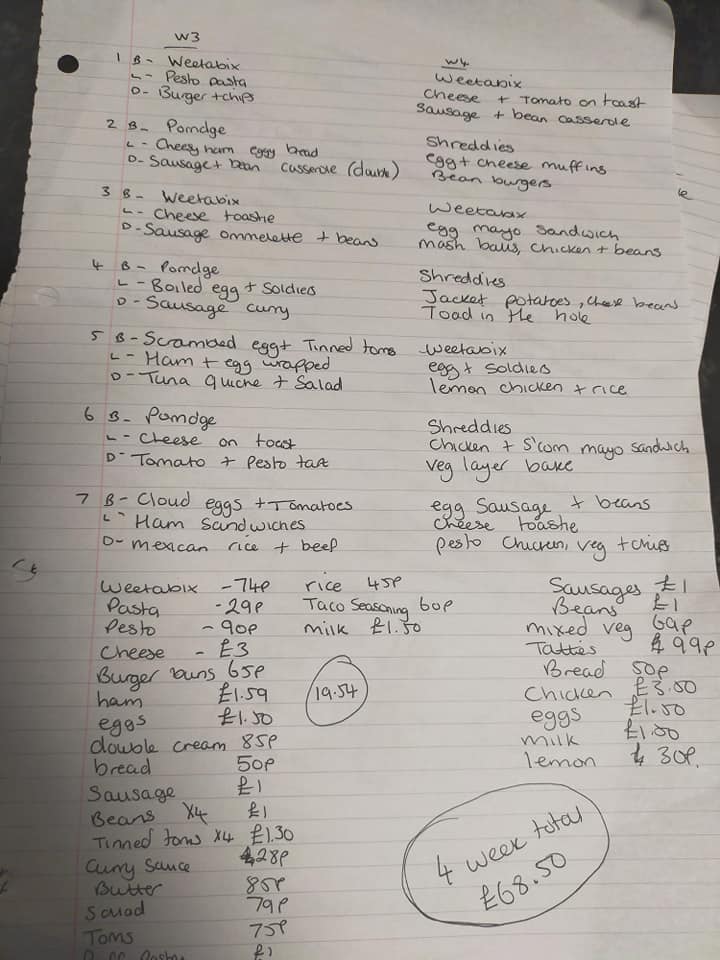 W3
1 B- Weetabix
L- Pesto pasta
D- Burger + chips
2 B- Porridge
L- Cheesy ham eggy bread
D- Sausage + bean casserole (double)
3 B- Weetabix
L- Cheese toastie
D- Sausage ommelette + beans
4 B- Porridge
L- Boiled egg + Soldiers
D- Sausage curry
5 B- Scrambled egg + Tinned toms
L- Ham + egg wrapped
D- Tuna quiche + Salad
6 B- Porridge
L- Cheese on toast
D- Tomato + Pesto tart
7 B- Cloud eggs + Tomatoes
L- Ham Sandwiches
D- mexican rice + beef
W4
Weetabix
Cheese + Tomato on toast
Sausage + bean casserole
Shreddies
egg + cheese muffins
Bean burgers
Weetabix
egg mayo sandwich
mash balls, chicken + beans
Shreddies
Jacket potatoes, cheese beans
Toad in the hole
weetabix
egg + soldiers
lemon chicken + rice
Shreddies
Chicken + S'corn mayo sandwich
veg layer bake
egg Sausage + beans
cheese toastie
pesto chicken, veg + chips
Weetabix - 74p
Pasta - 29p
Pesto - 90p
Cheese - £3
Burger buns 65p
ham £1.59
eggs £1.50
double cream 85p
bread 50p
Sausage £1
Beans x4 £1
Tinned toms x4 £1.30
Curry Sauce 28p
Butter 85p
Salad 79p
Toms 75p
£1
rice 45p
Taco Seasoning 60p
milk £1.50
19.54
Sausages £1
Beans £1
mixed veg 69p
Tatties 99p
Bread 50p
Chicken £3.50
eggs £1.50
milk £1.50
lemon 30p.
4 week total
£68.50